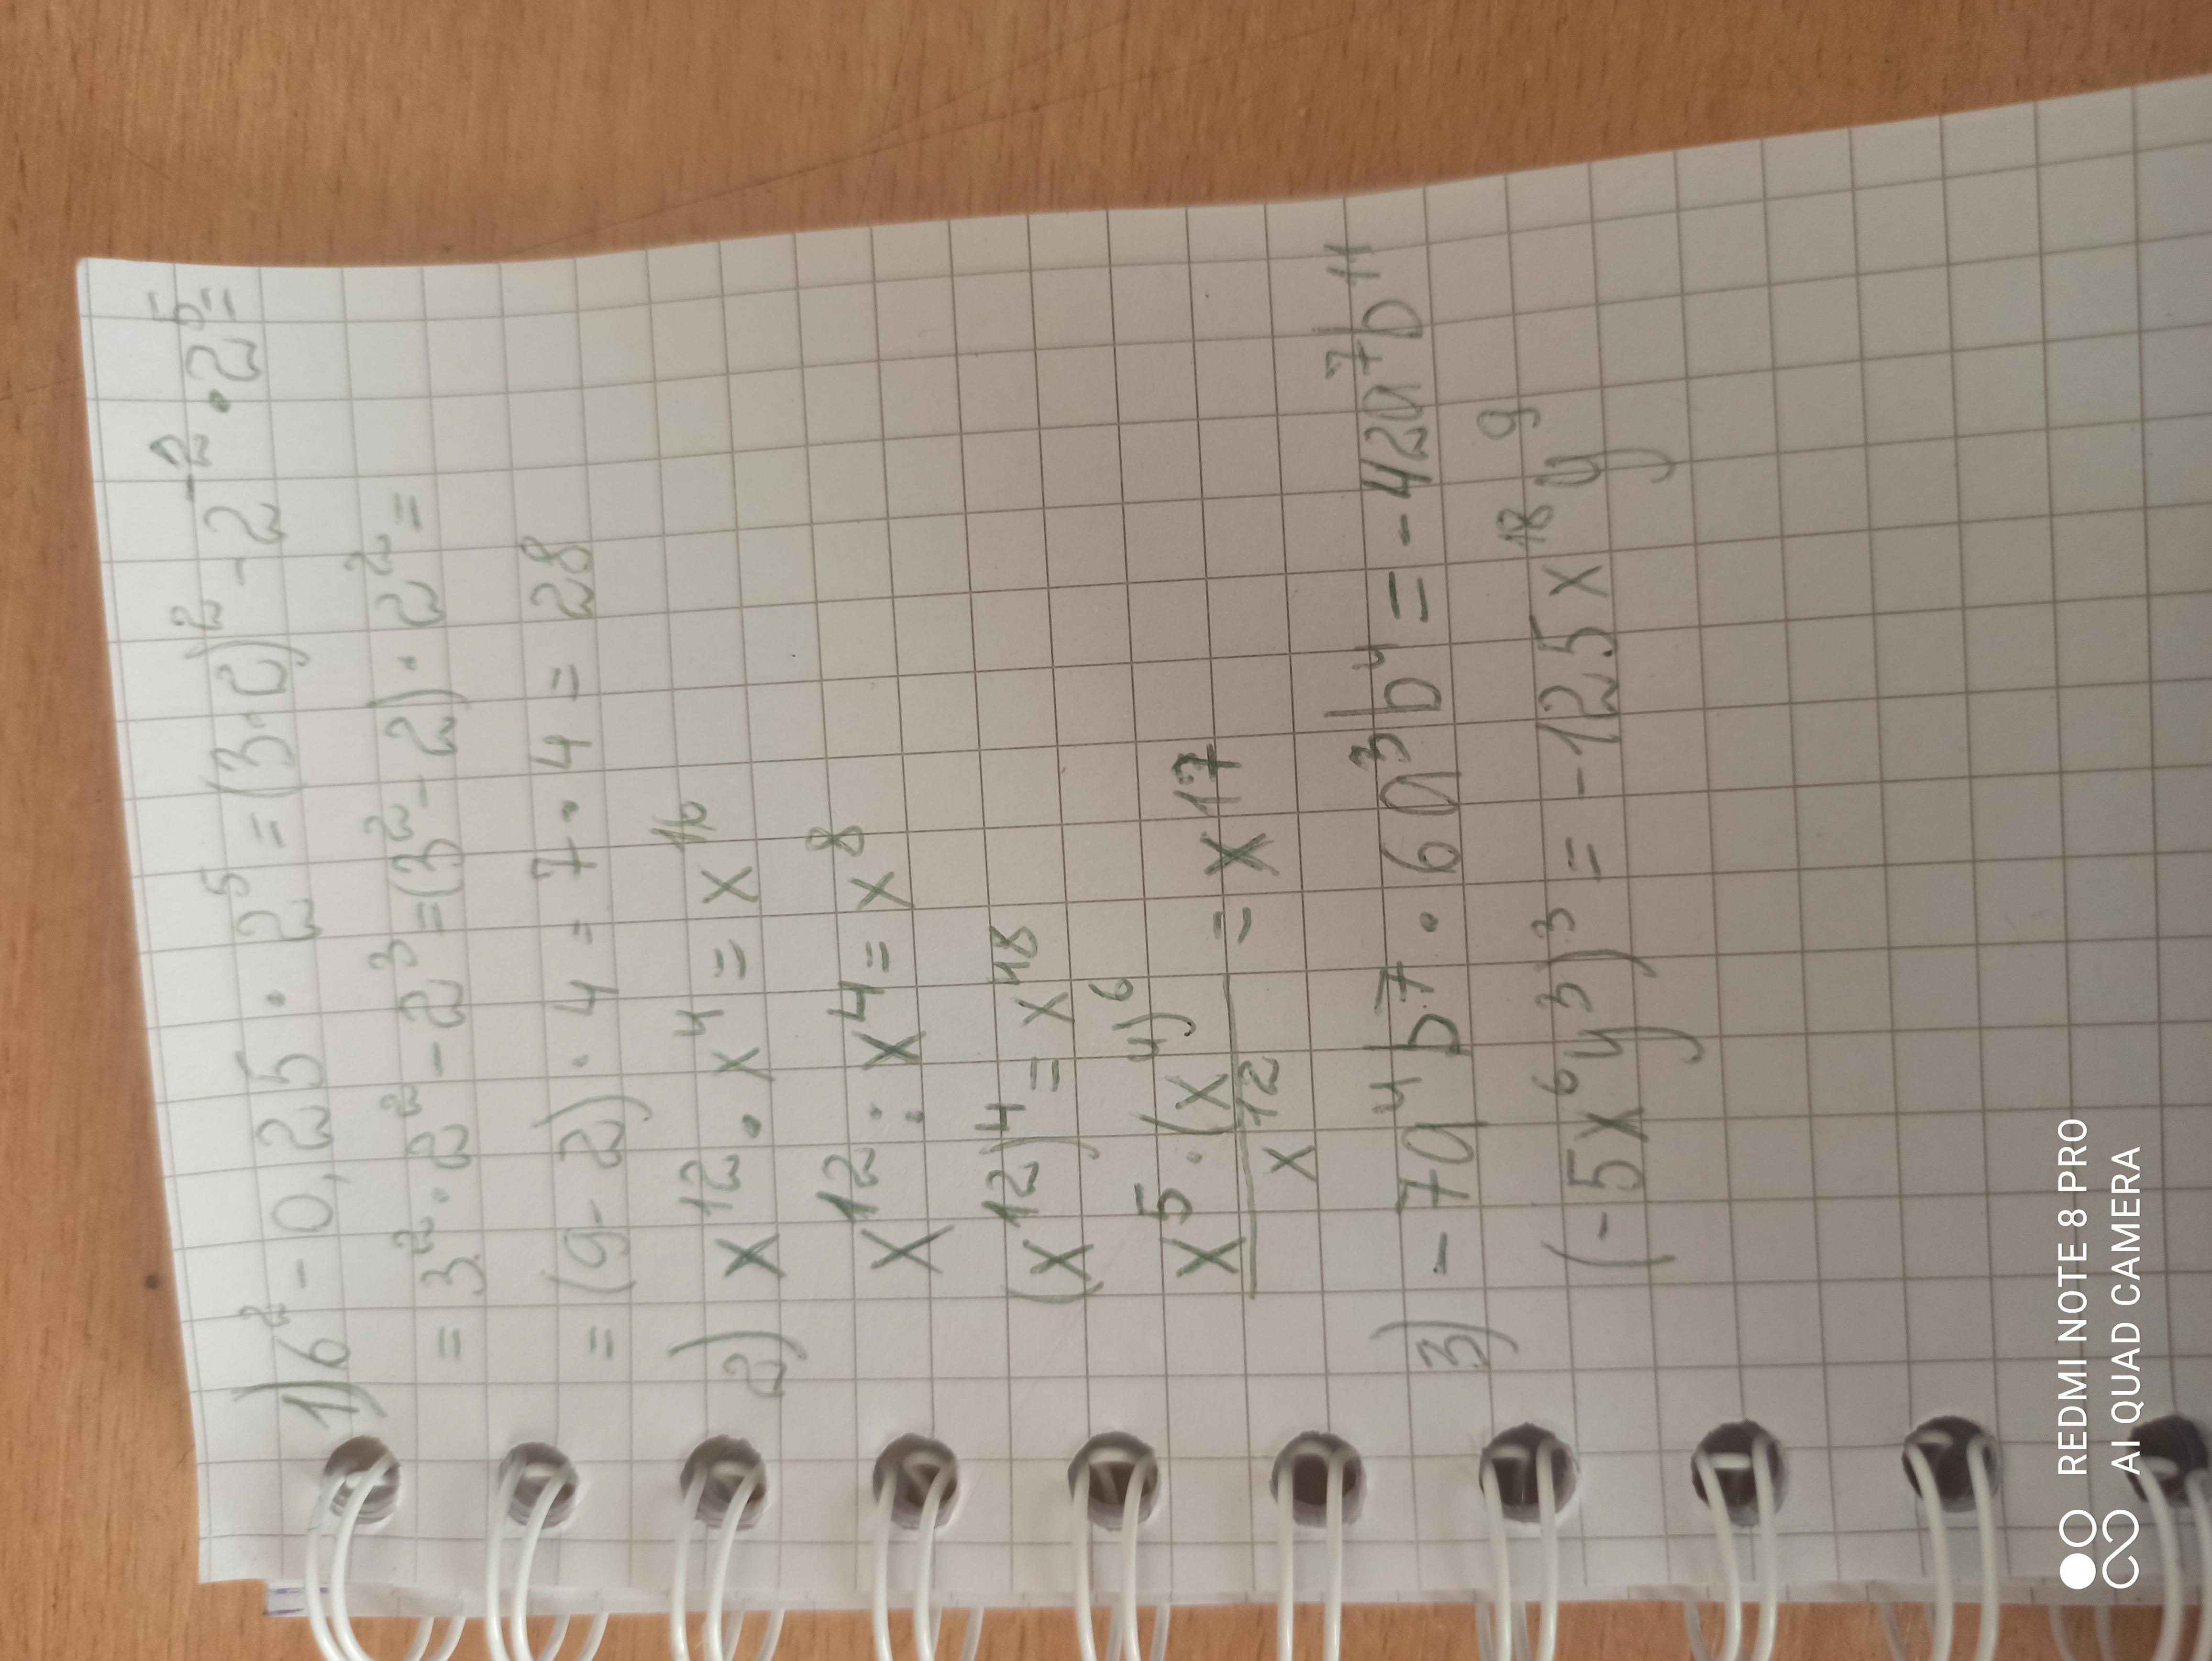 1) 6² - 0,25 · 2⁵ = (3·2)² - 2⁻² · 2⁵ =
= 3² · 2² - 2³ = (3² - 2) · 2² =
= (9 - 2) · 4 = 7 · 4 = 28
2) x¹² · x⁴ = x¹⁶
x¹² : x⁴ = x⁸
(x¹²)⁴ = x⁴⁸
x⁵ · (x⁴)⁶ / x¹² = x¹⁷
3) - 7a⁴b⁷ · 6a³b⁴ = - 42a⁷b¹¹
(-5x⁶y³)³ = -125x¹⁸y⁹
REDMI NOTE 8 PRO
AI QUAD CAMERA